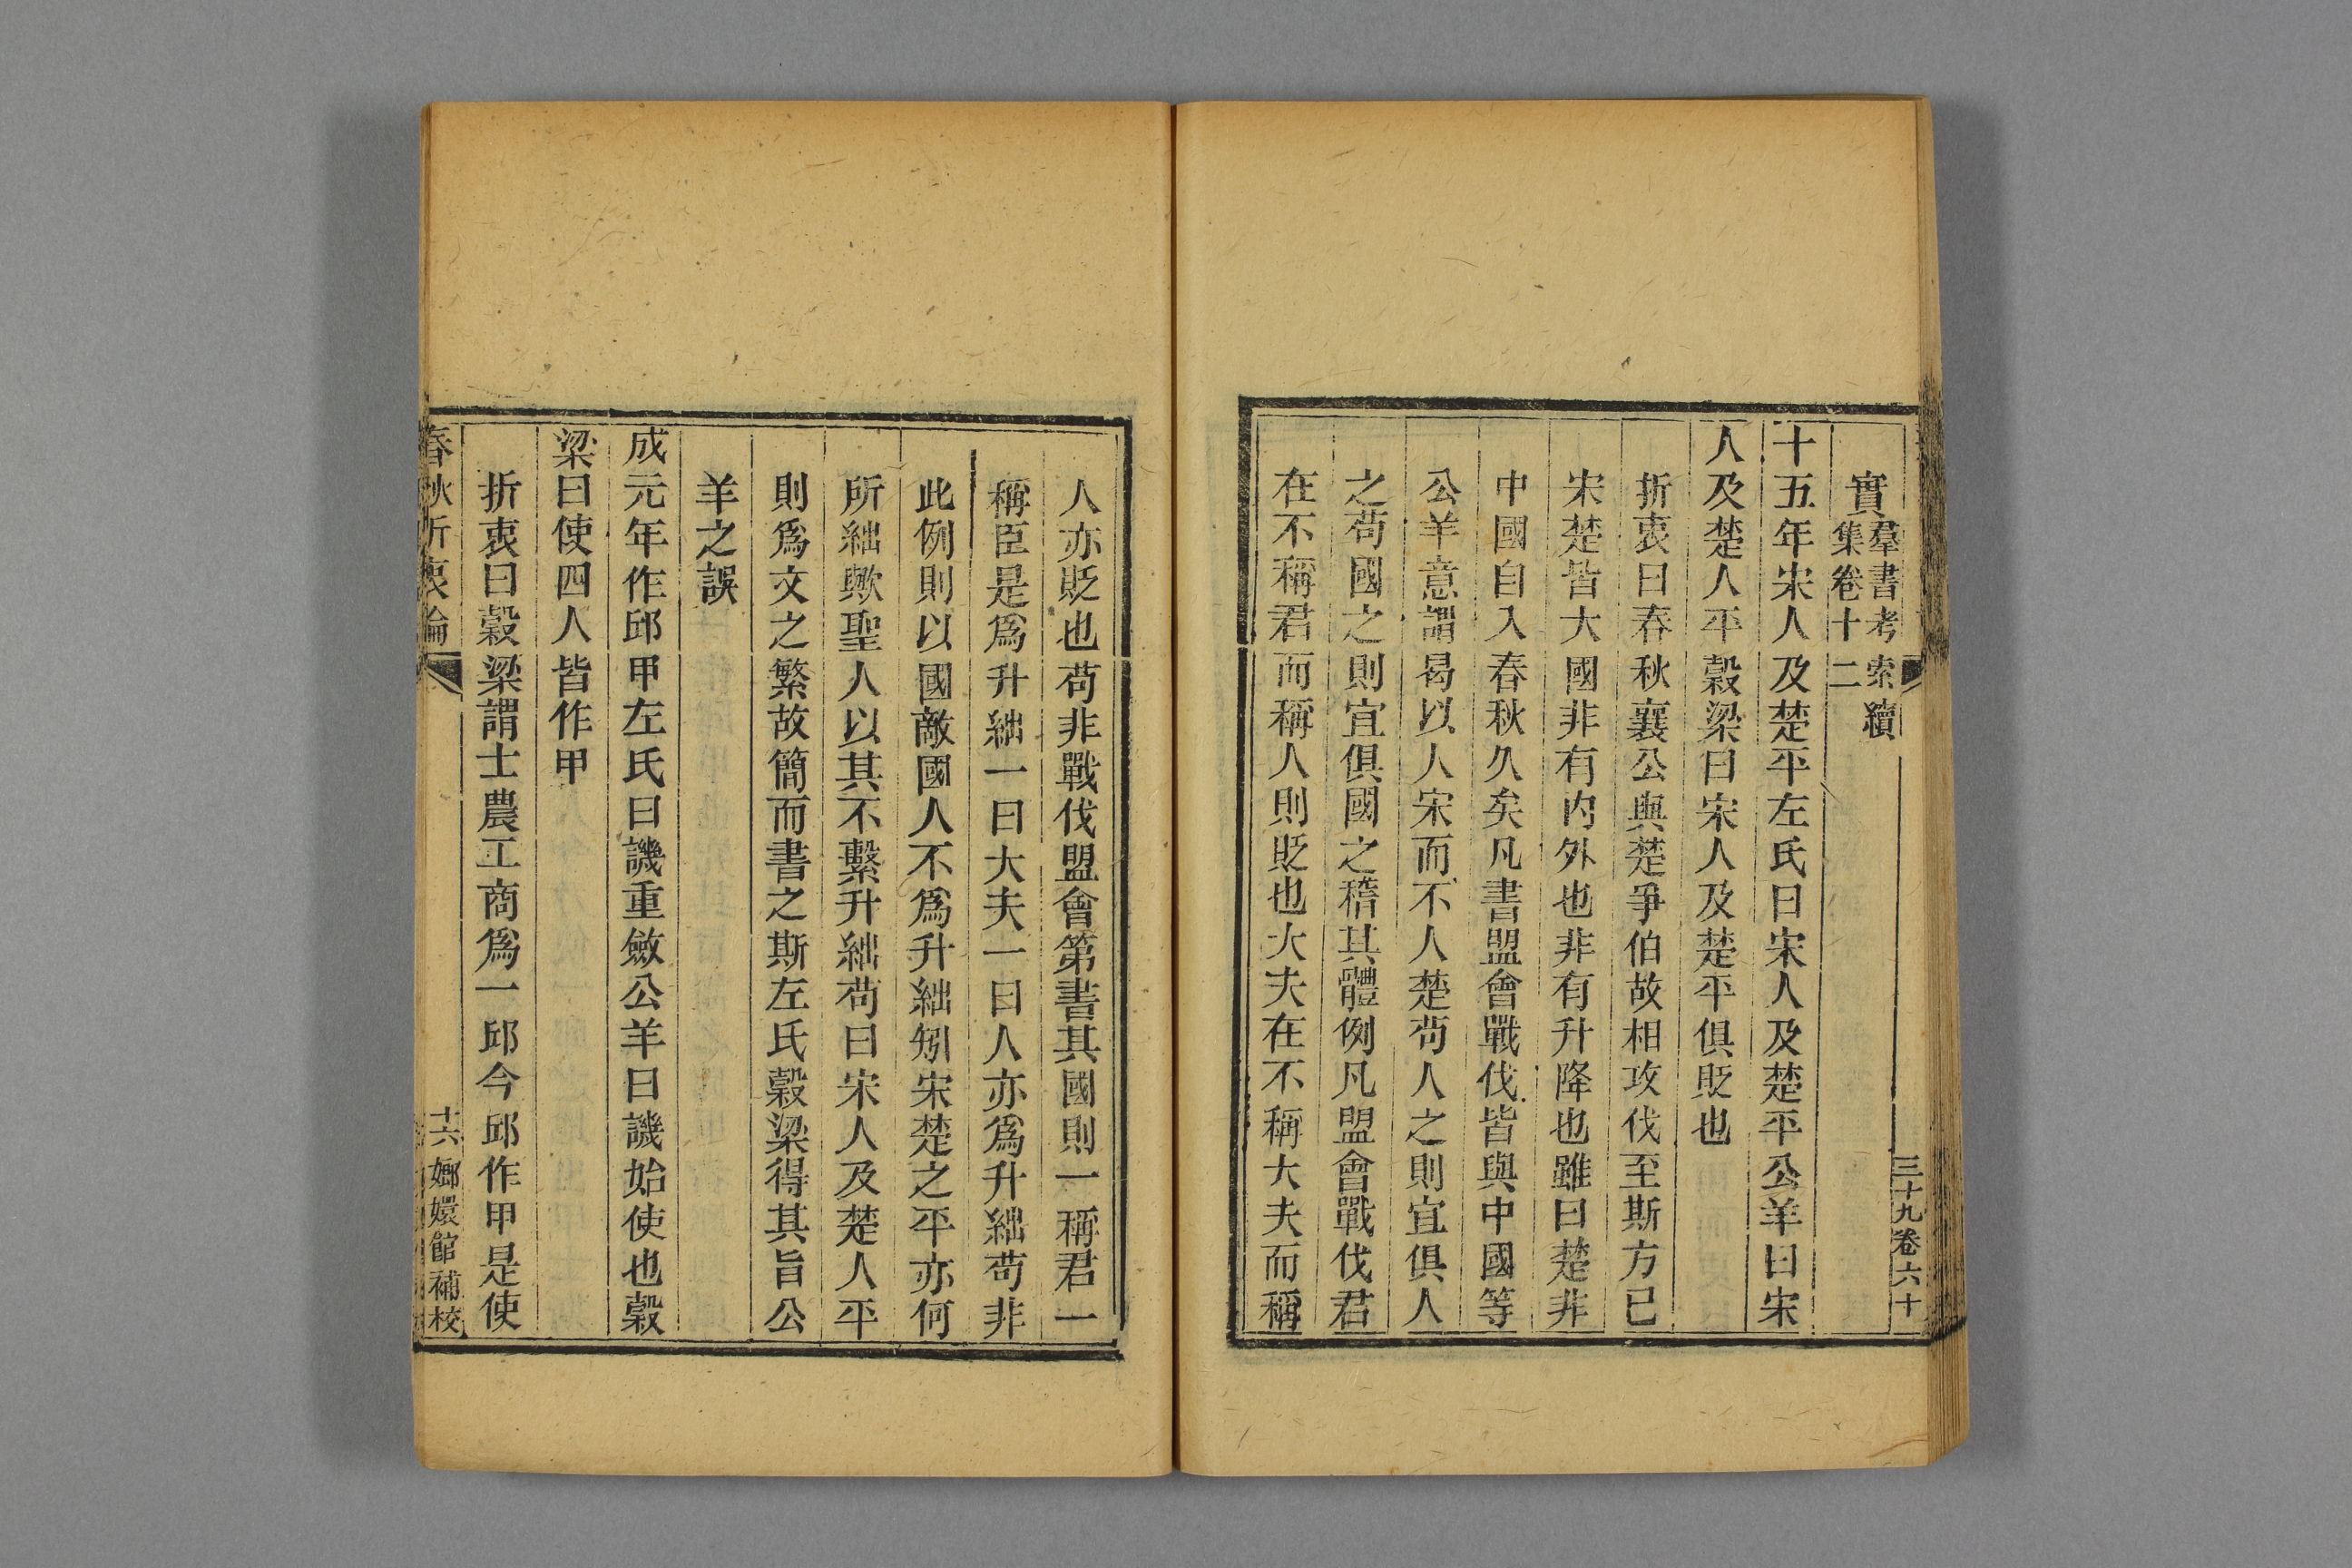 三十九卷六十
實羣書考索續集卷十二
十五年宋人及楚平左氏曰宋人及楚平公羊曰宋
人及楚人平穀梁曰宋人及楚平俱貶也
折衷曰春秋襄公與楚爭伯故相攻伐至斯方已
宋楚皆大國非有內外也非有升降也雖曰楚非
中國自入春秋久矣凡書盟會戰伐皆與中國等
公羊意謂曷以人宋而不人楚苟人之則宜俱人
之苟國之則宜俱國之稽其體例凡盟會戰伐君
在不稱君而稱人則貶也大夫在不稱大夫而稱
人亦貶也苟非戰伐盟會第書其國則一稱君一
稱臣是爲升絀一曰大夫一曰人亦爲升絀苟非
此例則以國敵國人不爲升絀矧宋楚之平亦何
所絀歟聖人以其不繫升絀苟曰宋人及楚人平
則爲文之繁故簡而書之斯左氏穀梁得其旨公
羊之誤
成元年作邱甲左氏曰譏重斂公羊曰譏始使也穀
梁曰使四人皆作甲
折衷曰穀梁謂士農工商爲一邱今邱作甲是使
春秋折衷論
十六
嫏嬛館補校